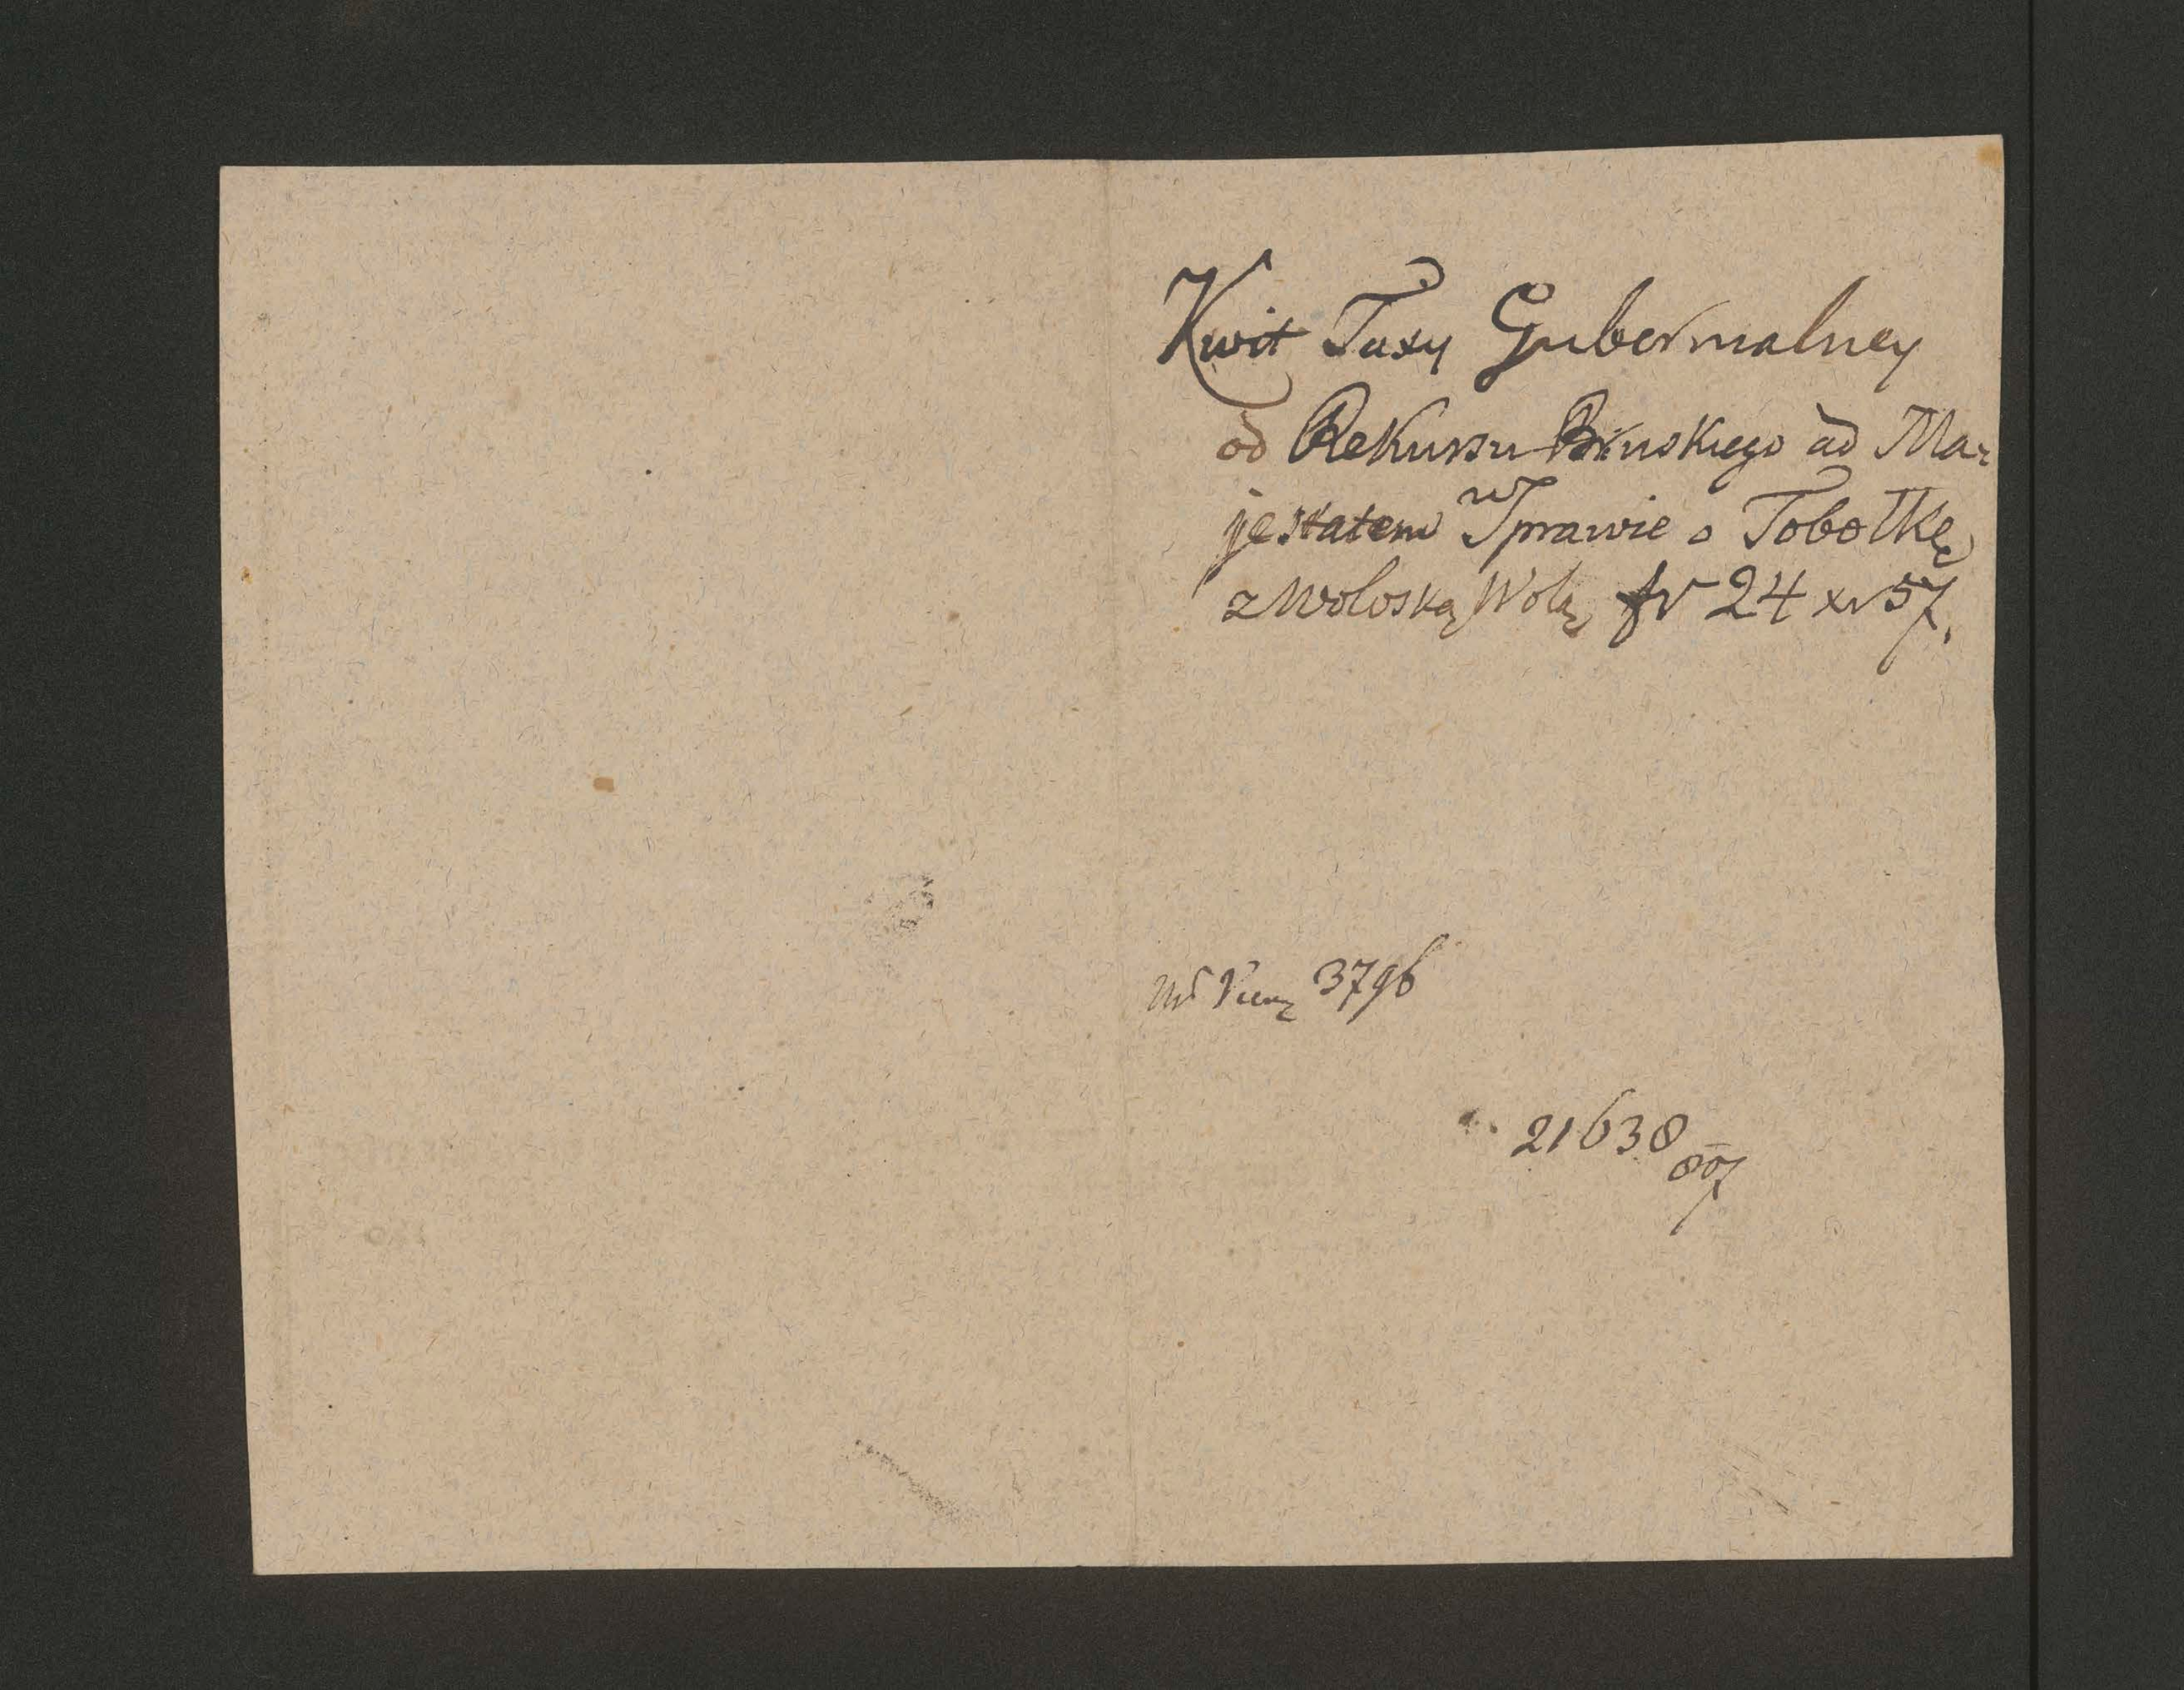 Kwit Taxy Gubernialney
od Rekursu Bruskiego ad Ma-
jestatem w Sprawie o Tobołkę
z Wołoską Wolą fr 24 xr 57.
3796
21638
807